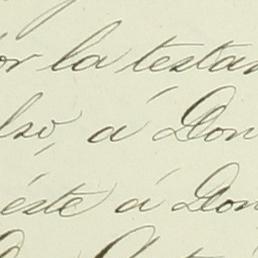 or la testa
lso, á Don
éste á Don